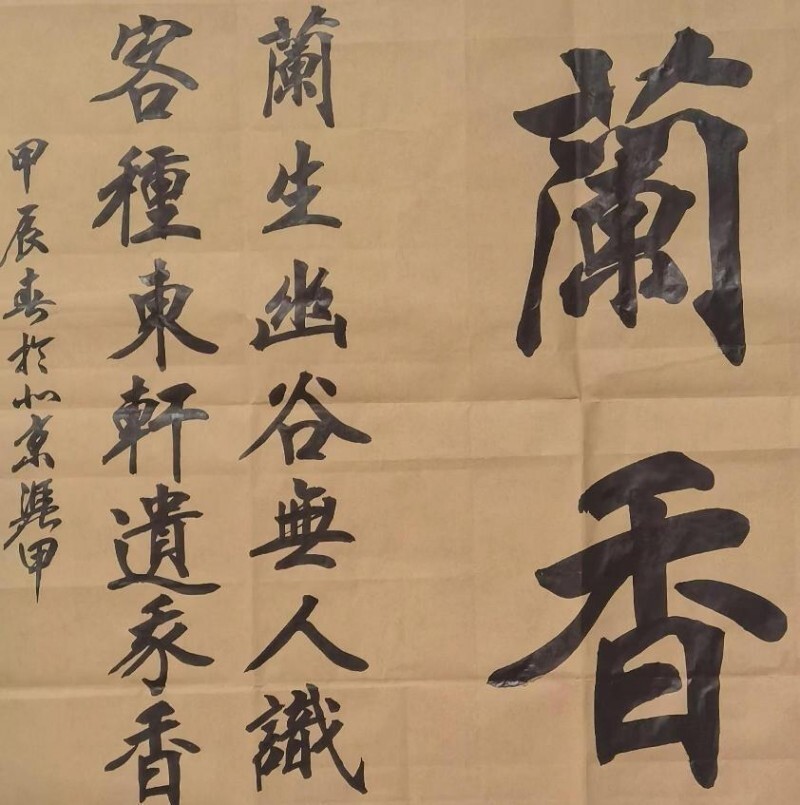 蘭香
蘭生幽谷無人識
客種東軒遺我香
甲辰春於北京